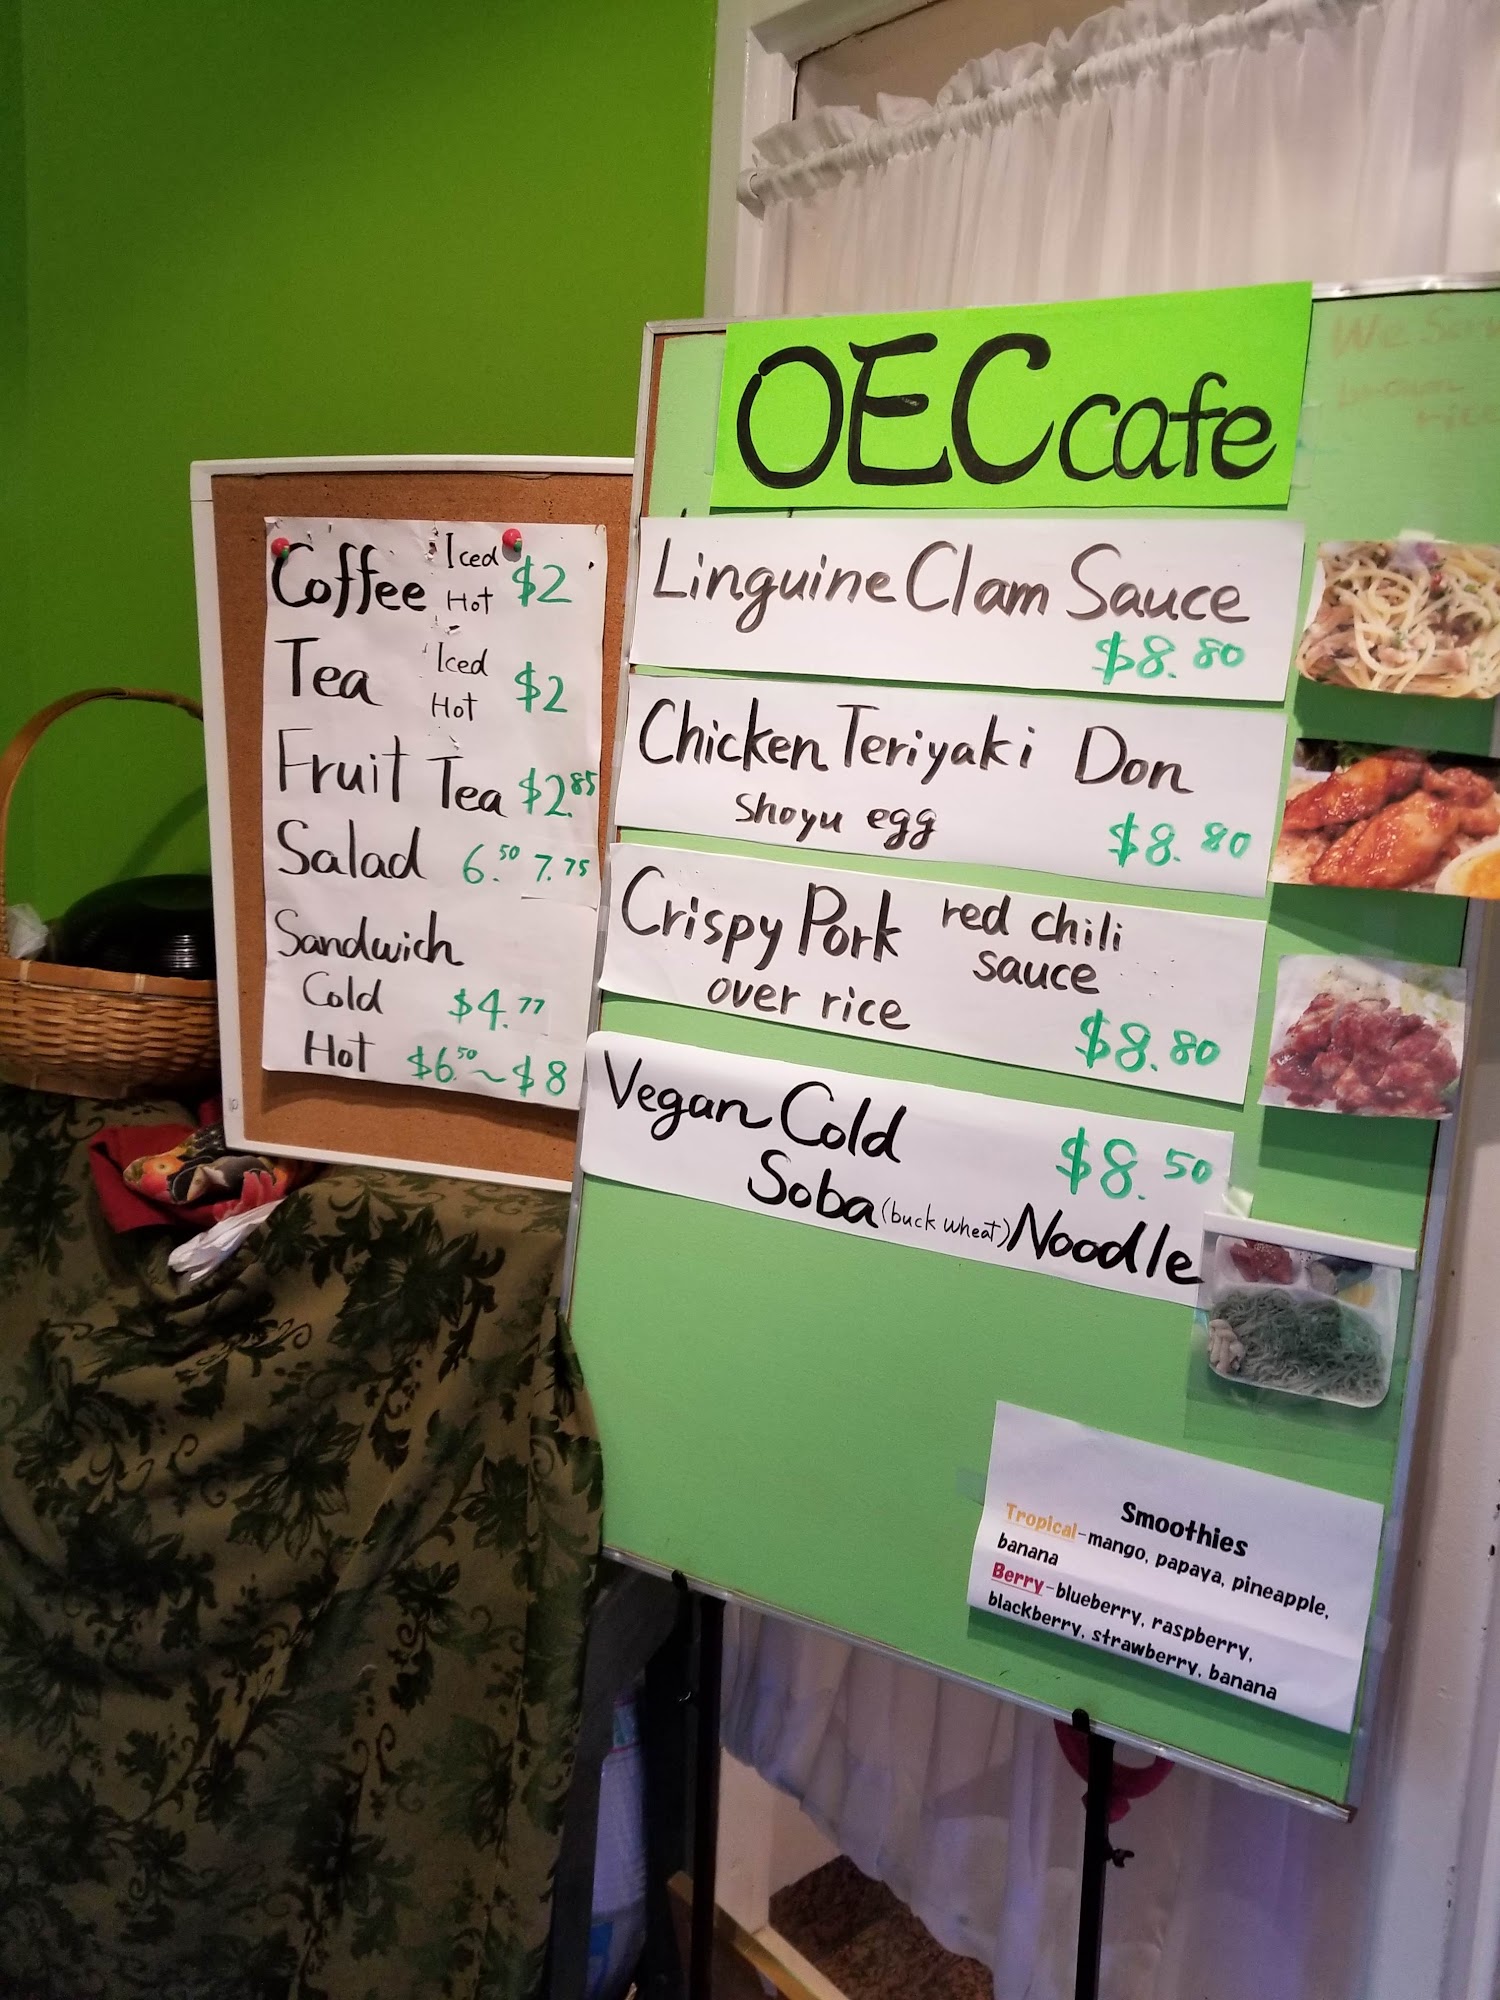 Coffee Iced Hot $2
Tea Iced Hot $2
Fruit Tea $2.85
Salad 6.50 7.75
Sandwich
Cold $4.77
Hot $6.50~$8
OEC cafe
We
rice
Linguine Clam Sauce
$8.80
Chicken Teriyaki Don
Shoyu egg $8.80
Crispy Pork red chili
sauce
over rice
$8.80
Vegan Cold $8.50
Soba (buck wheat) Noodle
Smoothies
Tropical-mango, papaya, pineapple,
banana
Berry-blueberry, raspberry,
blackberry, strawberry, banana